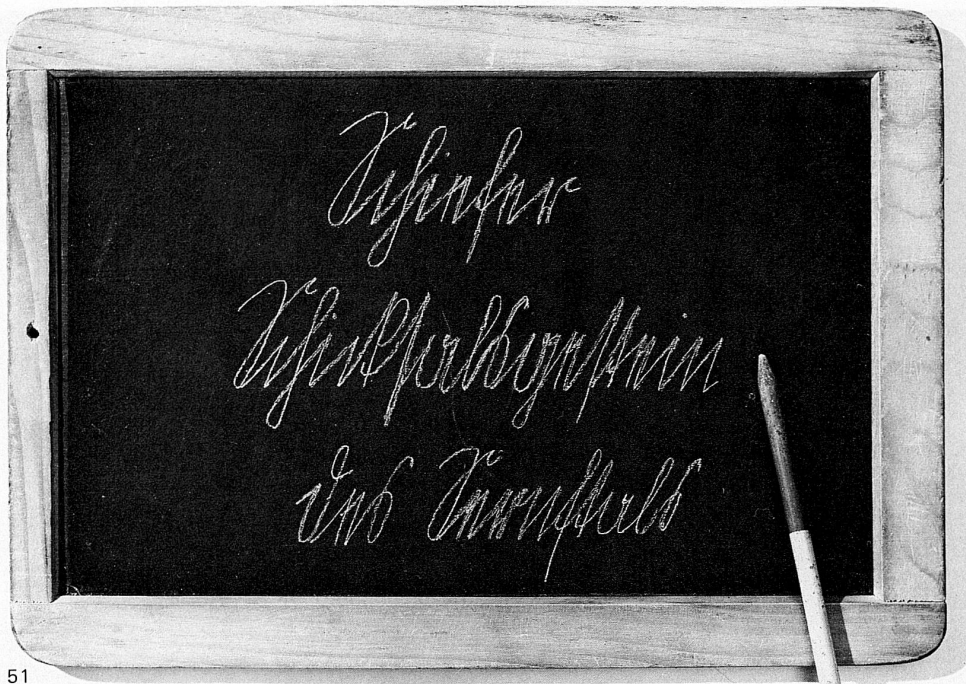 Schiefer
Schicksalsgestein
des Sernftals
51